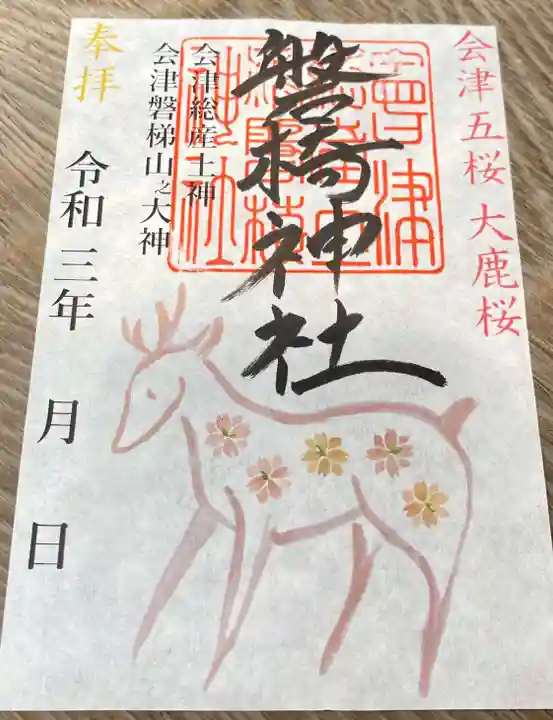 会津五桜 大鹿桜
磐椅神社
会津総産土神
会津磐梯山之大神
奉拝
令和三年 月 日